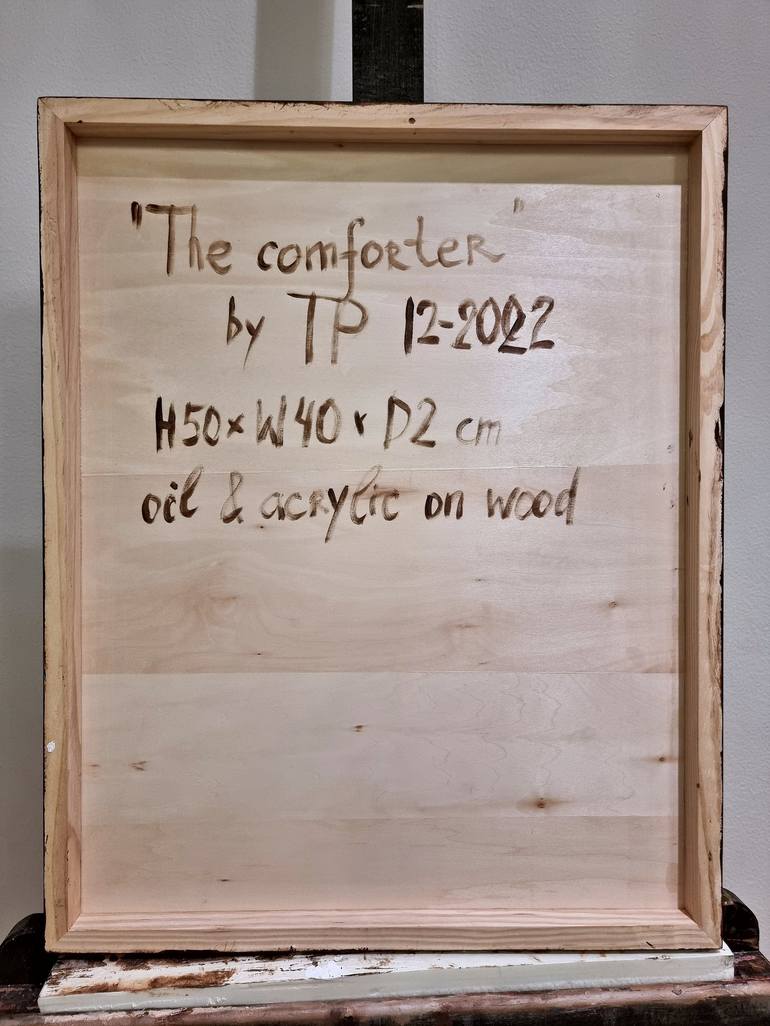 "The comforter"
by TP 12-2022
H50 x W40 x D2 cm
oil & acrylic on wood